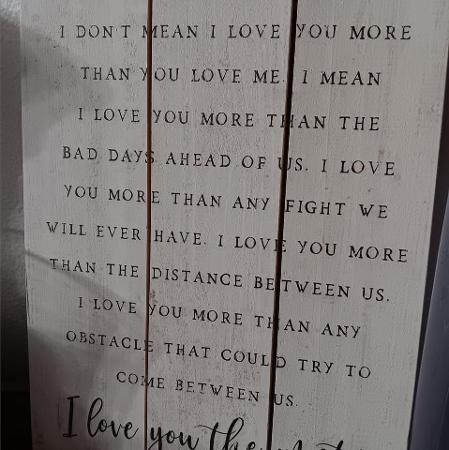 I DON'T MEAN I LOVE YOU MORE
THAN YOU LOVE ME. I MEAN
I LOVE YOU MORE THAN THE
BAD DAYS AHEAD OF US. I LOVE
YOU MORE THAN ANY FIGHT WE
WILL EVER HAVE. I LOVE YOU MORE
THAN THE DISTANCE BETWEEN US.
I LOVE YOU MORE THAN ANY
OBSTACLE THAT COULD TRY TO
COME BETWEEN US.
I love you the